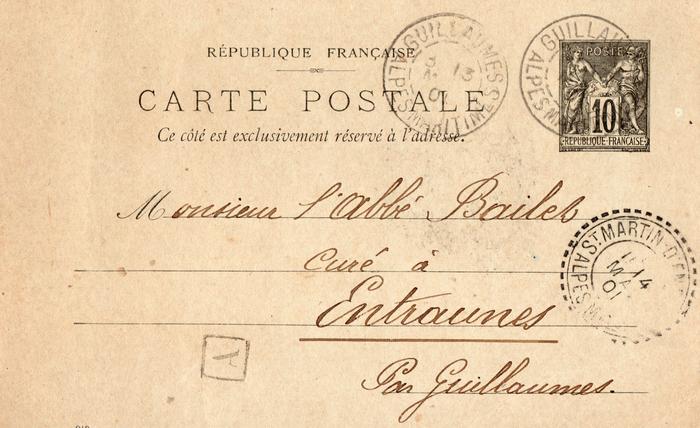 RÉPUBLIQUE FRANÇAISE
CARTE POSTALE
Ce côté est exclusivement réservé à l'adresse.
GUILLAUMES
13
ALPES MARITIMES
GUILLAU
ALPES M
POSTE
10
REPUBLIQUE FRANÇAISE
Monsieur l'abbé Bailet
Curé à
Entraunes
Par Guillaumes.
ST MARTIN D'EN
14
MA
01
ALPES M